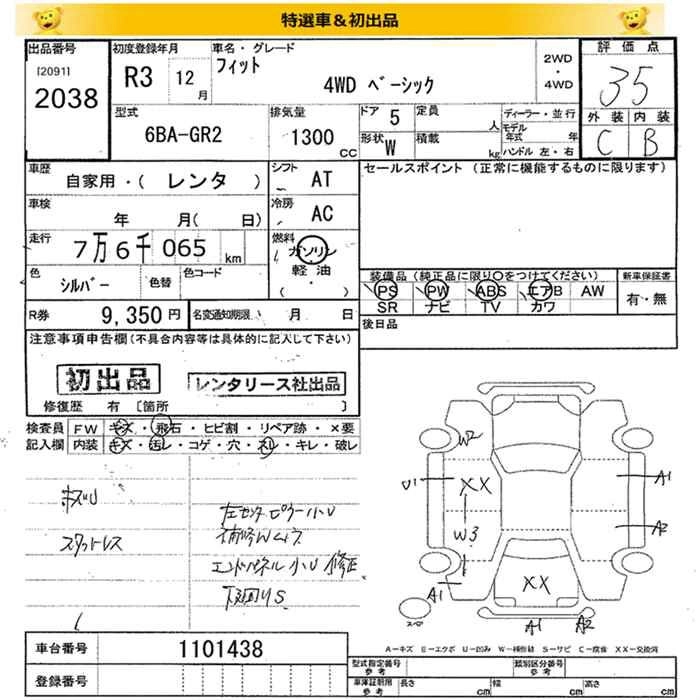 特選車&初出品
出品番号
[2091]
2038
初度登録年月
R3 12月
車名・グレード
フィット
4WD ベーシック
2WD
・
4WD
評価点
35
外装 内装
C B
型式
6BA-GR2
排気量
1300
CC
ドア 5
形状 W
定員 人
積載 kg
ディーラー・並行
モデル年式 年
ハンドル 左・右
車歴
自家用・( レンタ )
シフト AT
車検
年 月( 日)
冷房 AC
走行
7万6千065 km
燃料
ガソリン
軽油
( ・ )
色
シルバー
色替
色コード
R券 9,350円
名変通知期限 月 日
セールスポイント (正常に機能するものに限ります)
装備品 (純正品に限り○をつけてください)
PS PW ABS エアB AW
SR ナビ TV カワ
新車保証書
有・無
後日品
注意事項申告欄(不具合内容等は具体的に記入して下さい)
初出品
レンタリース社出品
修復歴 有 [箇所 ]
検査員記入欄
FW キズ・飛石・ヒビ割・リペア跡・×要
内装 キズ・汚レ・コゲ・穴・スレ・キレ・破レ
キズU
スタットレス
左センターピラー小U
補修Wムラ
エンドパネル小U 修正
下廻りS
W2
U1
XX
W3
A1
A2
A1
XX
A1
A2
スペ
A-キズ E-エクボ U-凹み W-補修跡 S-サビ C-腐食 XX-交換済
車台番号
1101438
登録番号
型式指定番号
参考
類別区分番号
参考
車庫証明用
参考
長さ cm
幅 cm
高さ cm